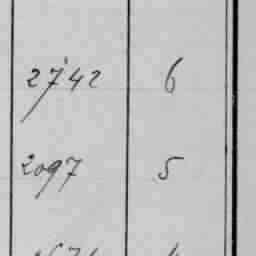 2742 6
2097 5